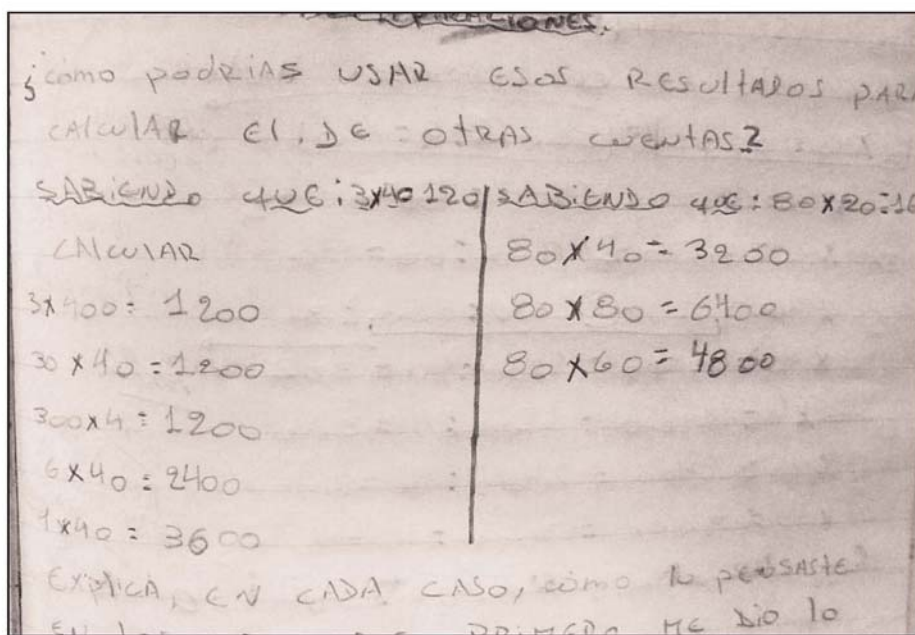 ¿como podRIAS USAR ESOS RESultADOS PAR
CAlculAR El DE OtRAS cuENtAS?
SABiENDO quE: 3x40 120
CAlculAR
3x400 = 1200
30 x 40 = 1200
300x4 = 1200
6x40 = 2400
1x40 = 3600
SABiENDO quE: 80x20=16
80x40 = 3200
80x80 = 6400
80x60 = 4800
EXpliCA, EN CADA CASO, cómo lo pENSAStE
EN PRIMERO ME Dio lo